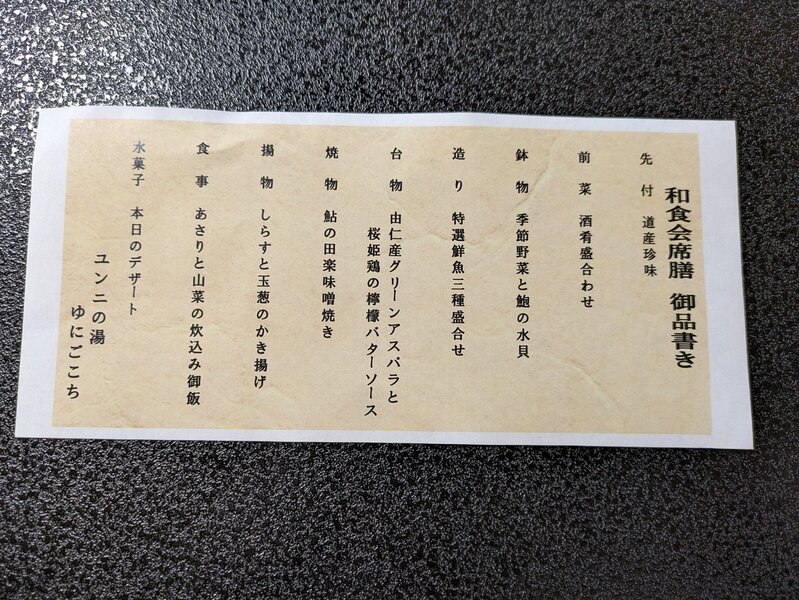 和食会席膳 御品書き
先付 道産珍味
前菜 酒肴盛合わせ
鉢物 季節野菜と鮑の水貝
造り 特選鮮魚三種盛合せ
台物 由仁産グリーンアスパラと
桜姫鶏の檸檬バターソース
焼物 鮎の田楽味噌焼き
揚物 しらすと玉葱のかき揚げ
食事 あさりと山菜の炊込み御飯
水菓子 本日のデザート
ユンニの湯
ゆにごこち